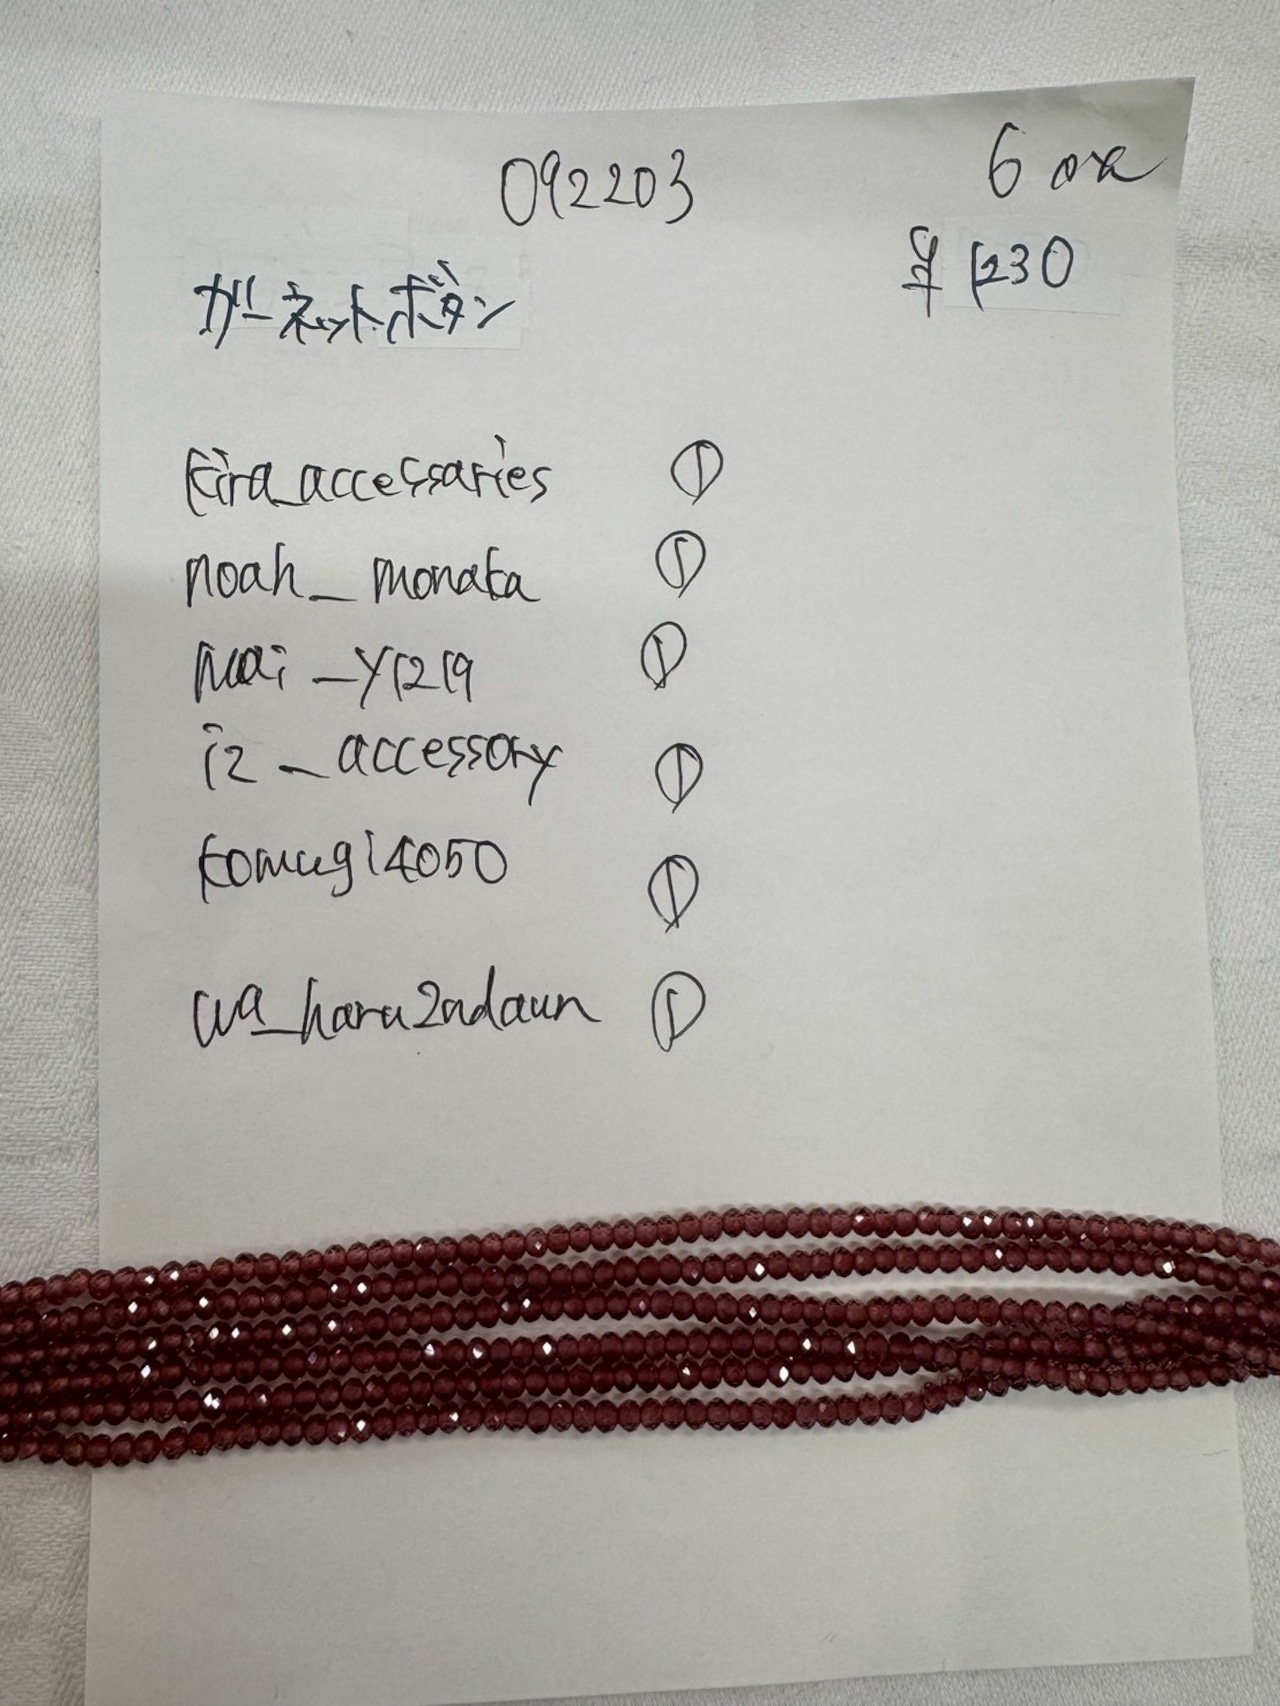 092203
6
¥1230
ガーネットボタン
kira_accessaries ①
noah_monaka ①
mai_y1219 ①
iz_accessory ①
komugi4050 ①
wa_haru2ndaun ①